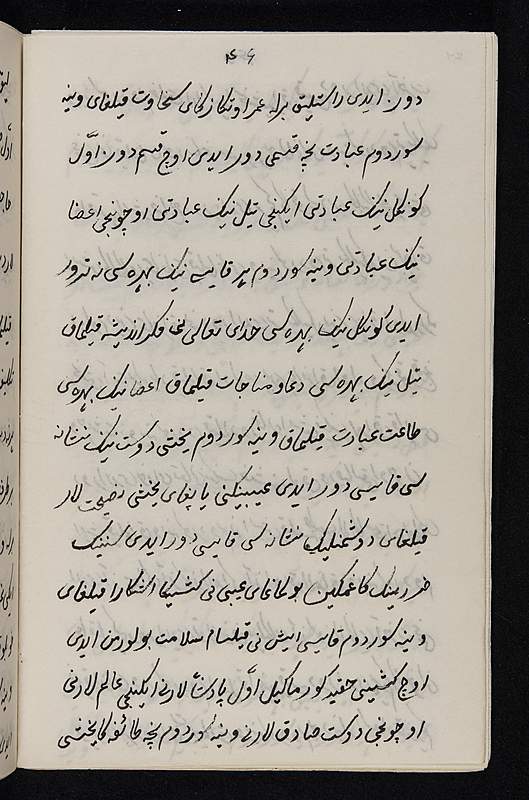 ۴۶
دور ایدی راستلیق برله عمر اوتکازکای سخاوت قیلغای وینه
سوردوم عبادت نچه قسمی دور ایدی اوچ قسم دور اوّل
کونکل نیک عبادتی ایکنجی تیل نیک عبادتی اوچونجی اعضا
نیک عبادتی وینه سوردوم هر قایسی نیک بهره سی نه ترور
ایدی کونکل نیک بهره سی خدای تعالی نی فکر اندیشه قیلماق
تیل نیک بهره سی دعا و مناجات قیلماق اعضا نیک بهره سی
طاعت عبادت قیلماق وینه سوردوم یخشی دوست نیک نشانه
سی قایسی دور ایدی عیبینکنی یاپغای یخشی نصیحت لار
قیلغای دوشمنلیک نشانه سی قایسی دور ایدی سنینک
ضررینک کا غمکین بولماغای عیبی نی کشیکا اشکارا قیلغای
وینه سوردوم قایسی ایش نی قیلسام سلامت بولورمن ایدی
اوچ کشینی حقیر کورماکیل اوّل پادشاه لارنی ایکینجی عالم لارنی
اوچونجی دوست صادق لارنی وینه سوردوم نچه طائفه کا یخشی